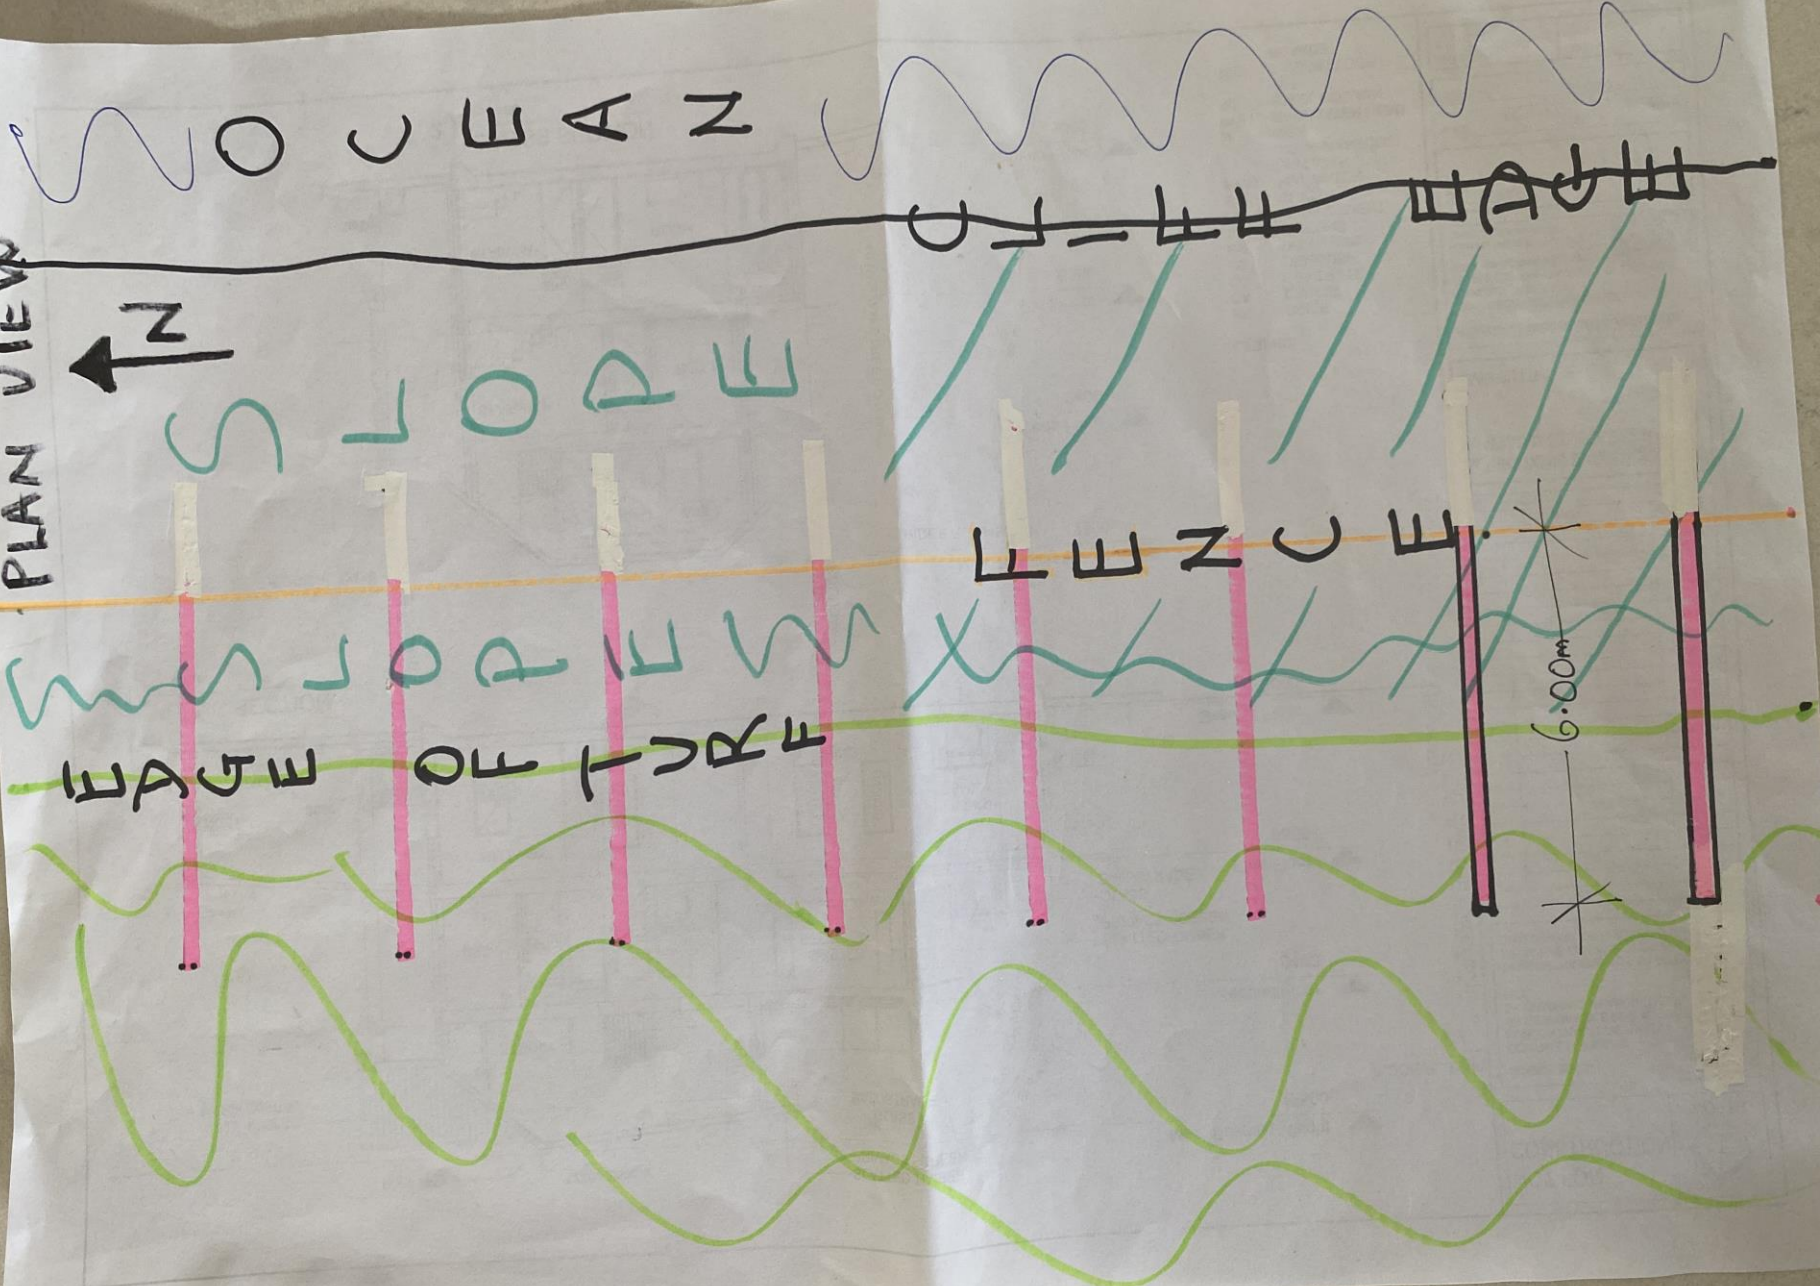 PLAN VIEW
N
OCEAN
CLIFF EDGE
SLOPE
FENCE
SLOPE
EDGE OF TURF
6.00m